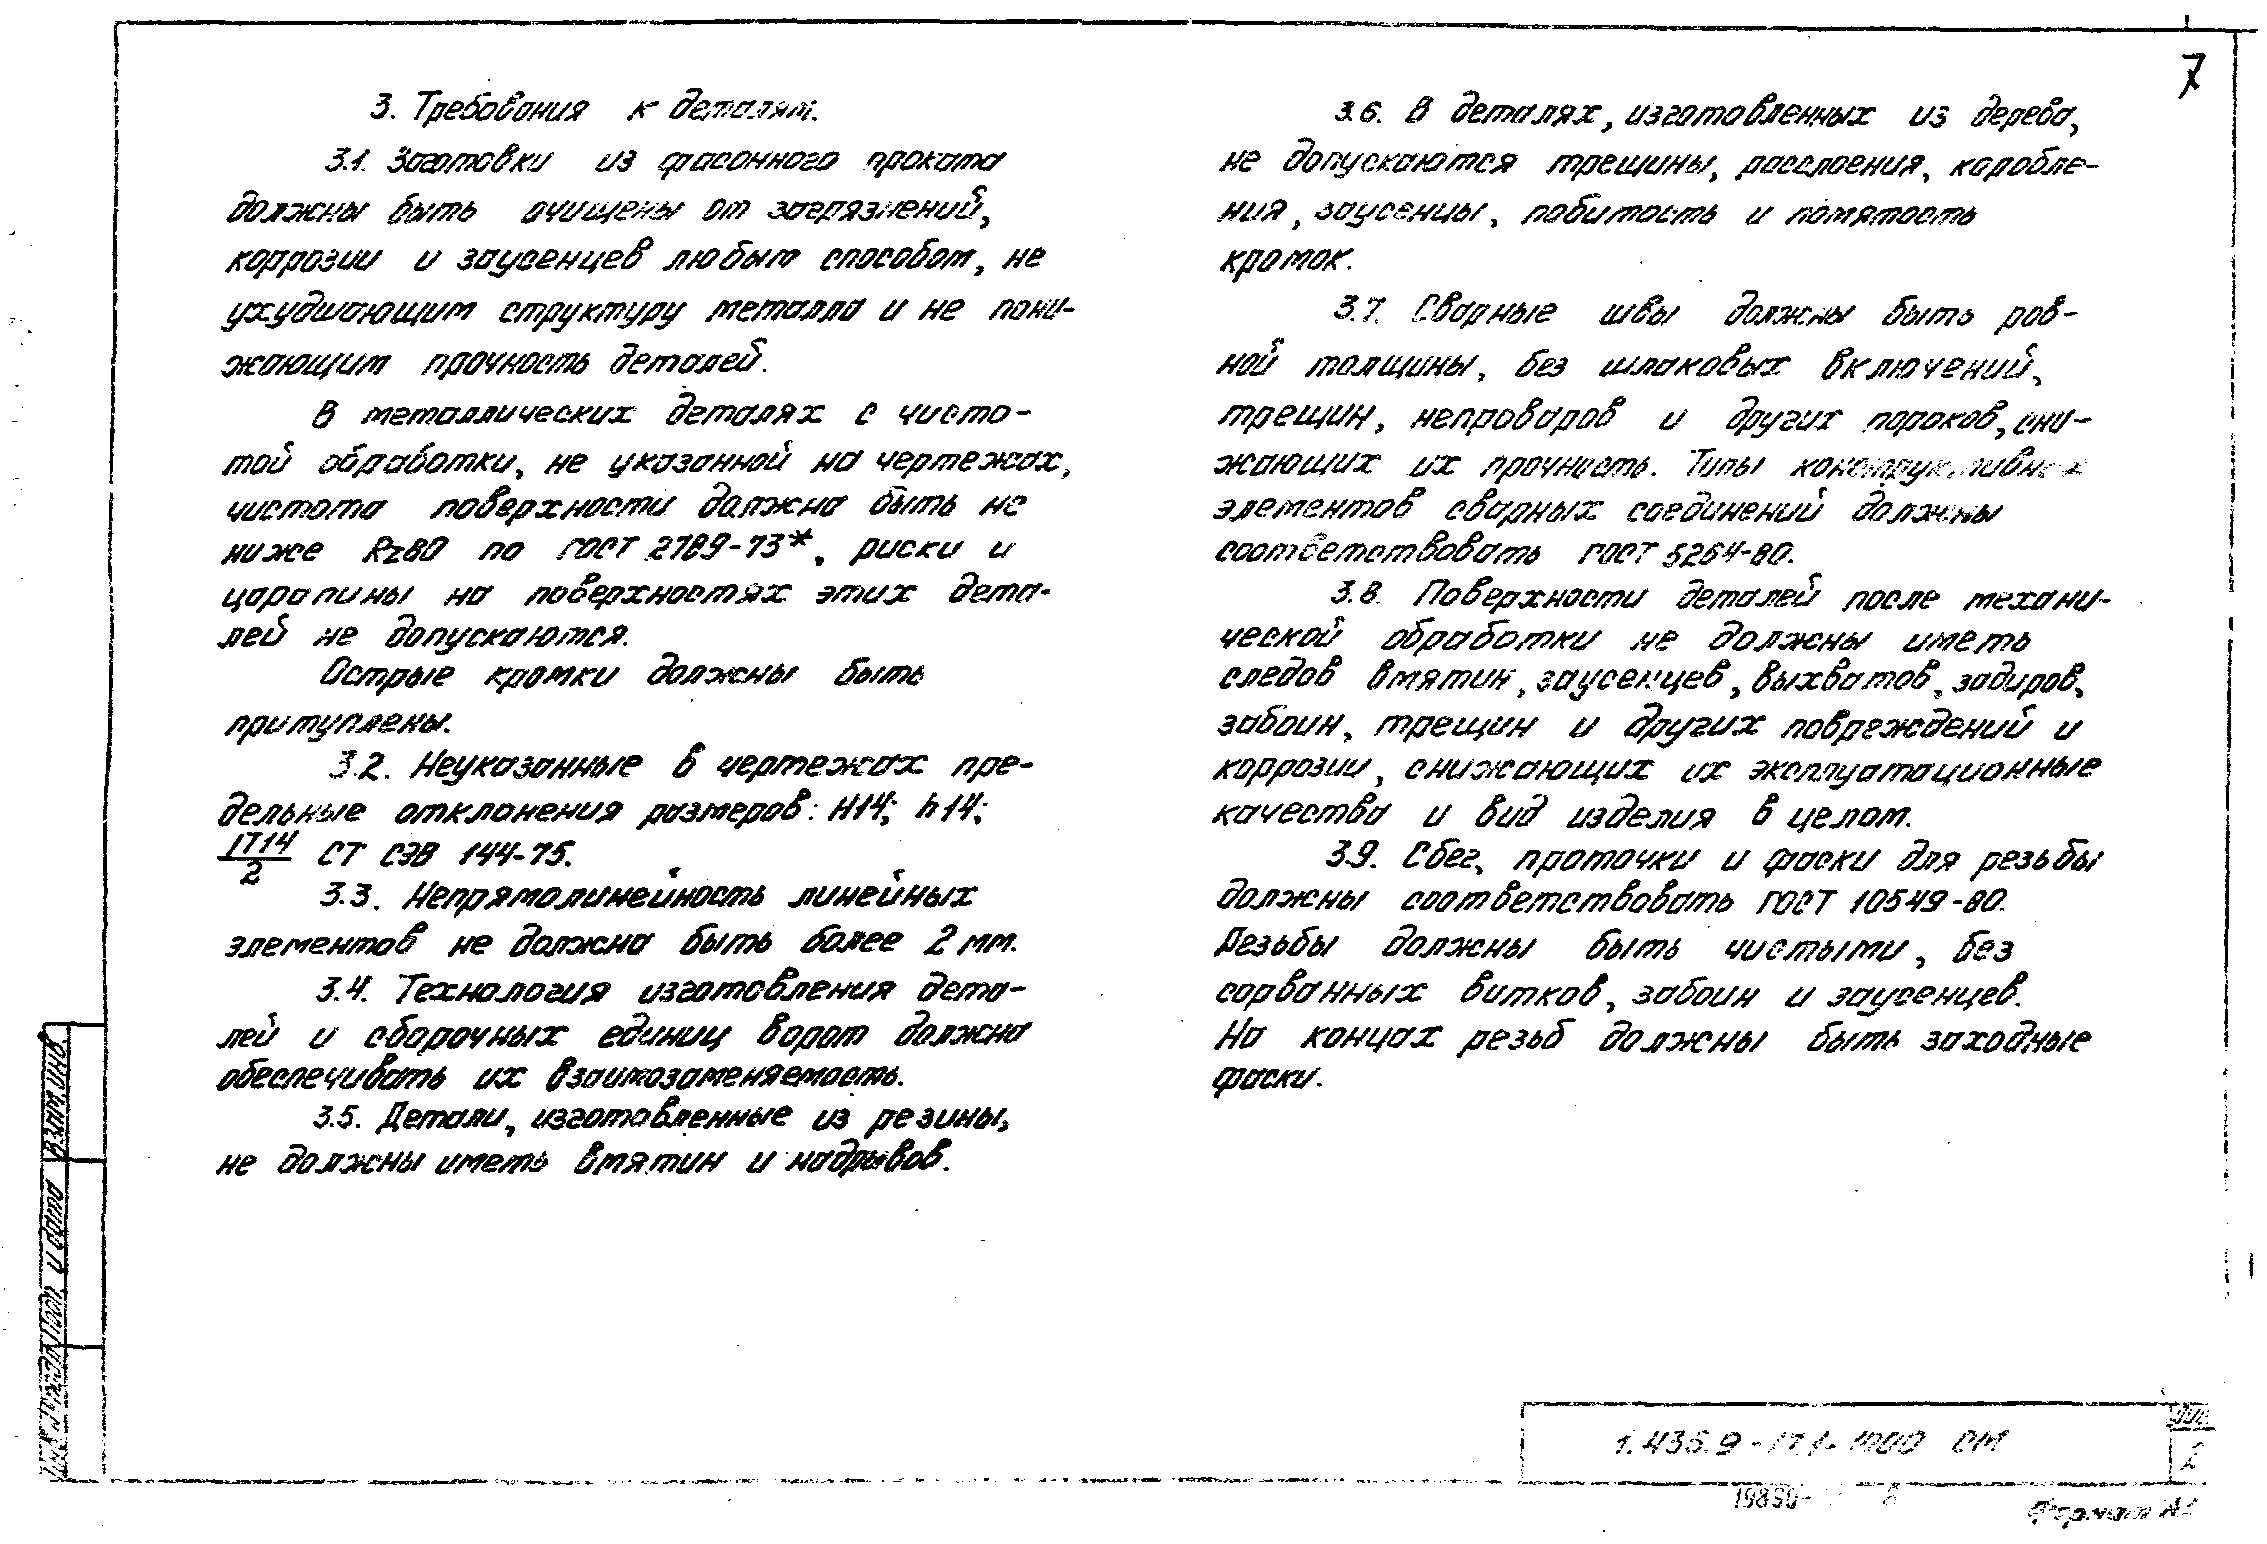 7
3. Требования к деталям.
3.1. Заготовки из фасонного проката
должны быть очищены от загрязнений,
коррозии и заусенцев любым способом, не
ухудшающим структуру металла и не пони-
жающим прочность деталей.
В металлических деталях с чисто-
той обработки, не указанной на чертежах,
чистота поверхности должна быть не
ниже Rz80 по ГОСТ 2789-73*, риски и
царапины на поверхностях этих дета-
лей не допускаются.
Острые кромки должны быть
притуплены.
3.2. Неуказанные в чертежах пре-
дельные отклонения размеров: H14; h14;
IT14/2 СТ СЭВ 144-75.
3.3. Непрямолинейность линейных
элементов не должна быть более 2 мм.
3.4. Технология изготовления дета-
лей и сборочных единиц ворот должна
обеспечивать их взаимозаменяемость.
3.5. Детали, изготовленные из резины,
не должны иметь вмятин и надрывов.
3.6. В деталях, изготовленных из дерева,
не допускаются трещины, расслоения, коробле-
ния, заусенцы, побитость и помятость
кромок.
3.7. Сварные швы должны быть ров-
ной толщины, без шлаковых включений,
трещин, непроваров и других пороков, сни-
жающих их прочность. Типы конструктивных
элементов сварных соединений должны
соответствовать ГОСТ 5264-80.
3.8. Поверхности деталей после механи-
ческой обработки не должны иметь
следов вмятин, заусенцев, выхватов, задиров,
забоин, трещин и других повреждений и
коррозии, снижающих их эксплуатационные
качества и вид изделия в целом.
3.9. Сбег, проточки и фаски для резьбы
должны соответствовать ГОСТ 10549-80.
Резьбы должны быть чистыми, без
сорванных витков, забоин и заусенцев.
На концах резьб должны быть заходные
фаски.
Взам.инв.
Подпись и дата
1.435.9-17.1-1000 СМ
2
19890-
Формат